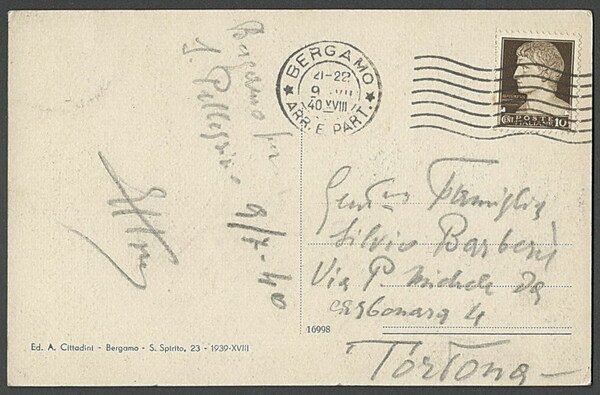 Bergamo per
S. Pellegrino 9/7-40
BERGAMO
21-22
9 VII
40 XVIII
ARR. E PART.
POSTE
ITALIANE
CENT 10
Famiglia
Silvio Barberi
Via P. Michele Da
Carbonara 4
Tortona
16998
Ed. A. Cittadini - Bergamo - S. Spirito, 23 - 1939-XVIII